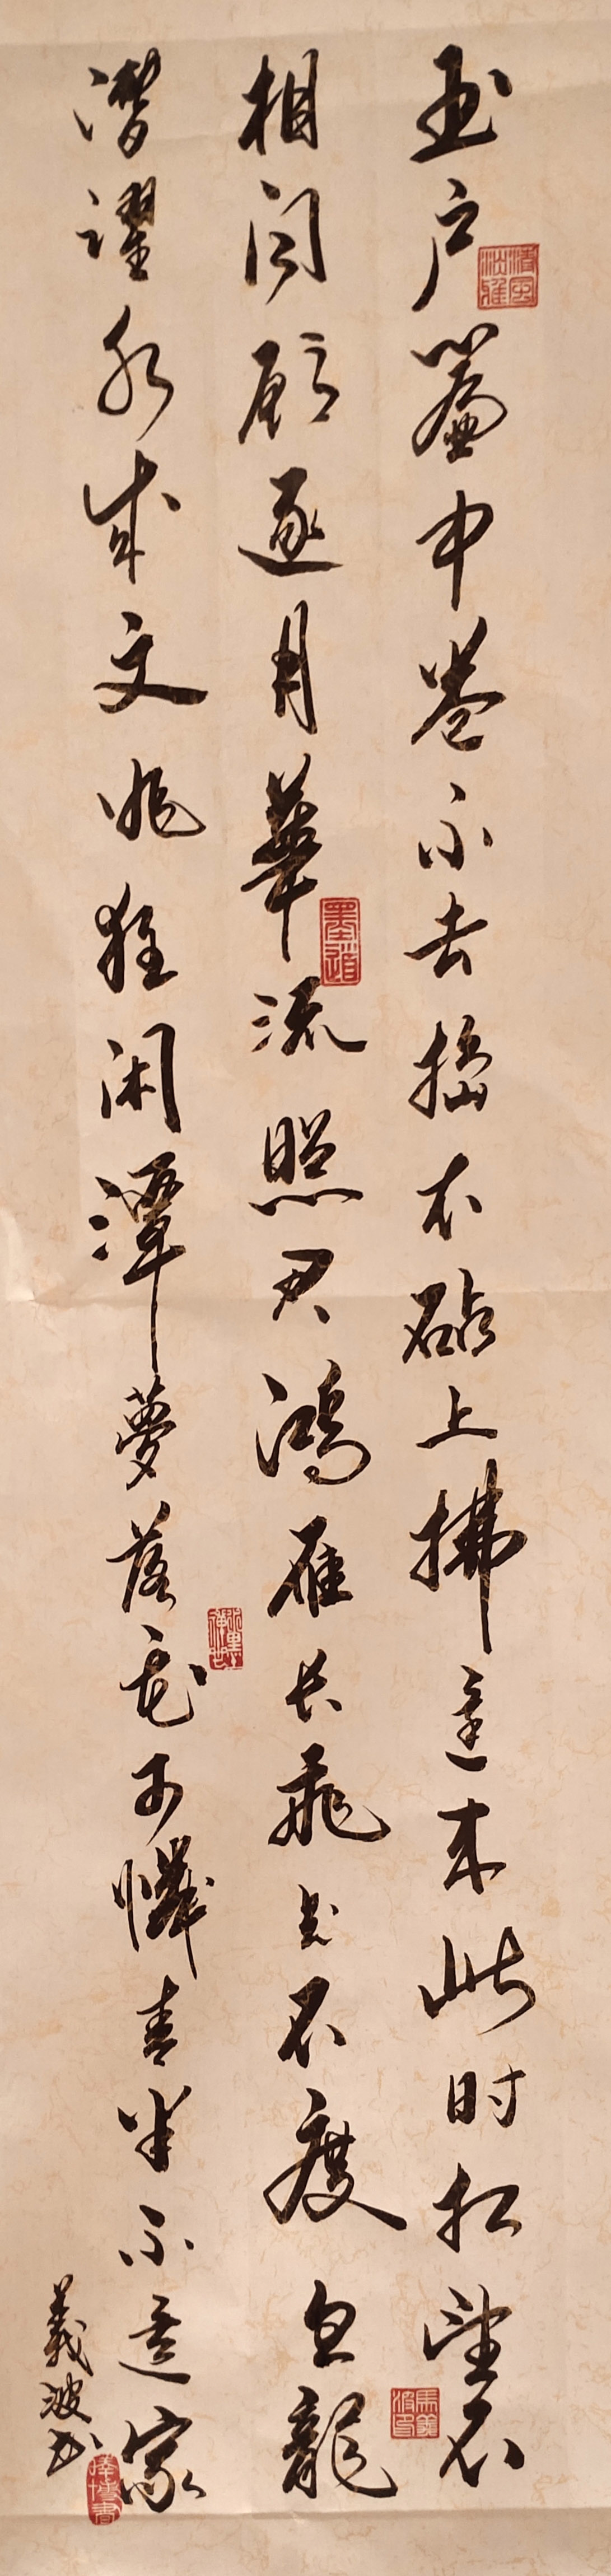 玉户簾中卷不去擣衣砧上拂還来此时相望不
相闻愿逐月華流照君鴻雁长飛光不度鱼龍
潛躍水成文昨夜闲潭夢落花可憐春半不還家
義波书
墨道